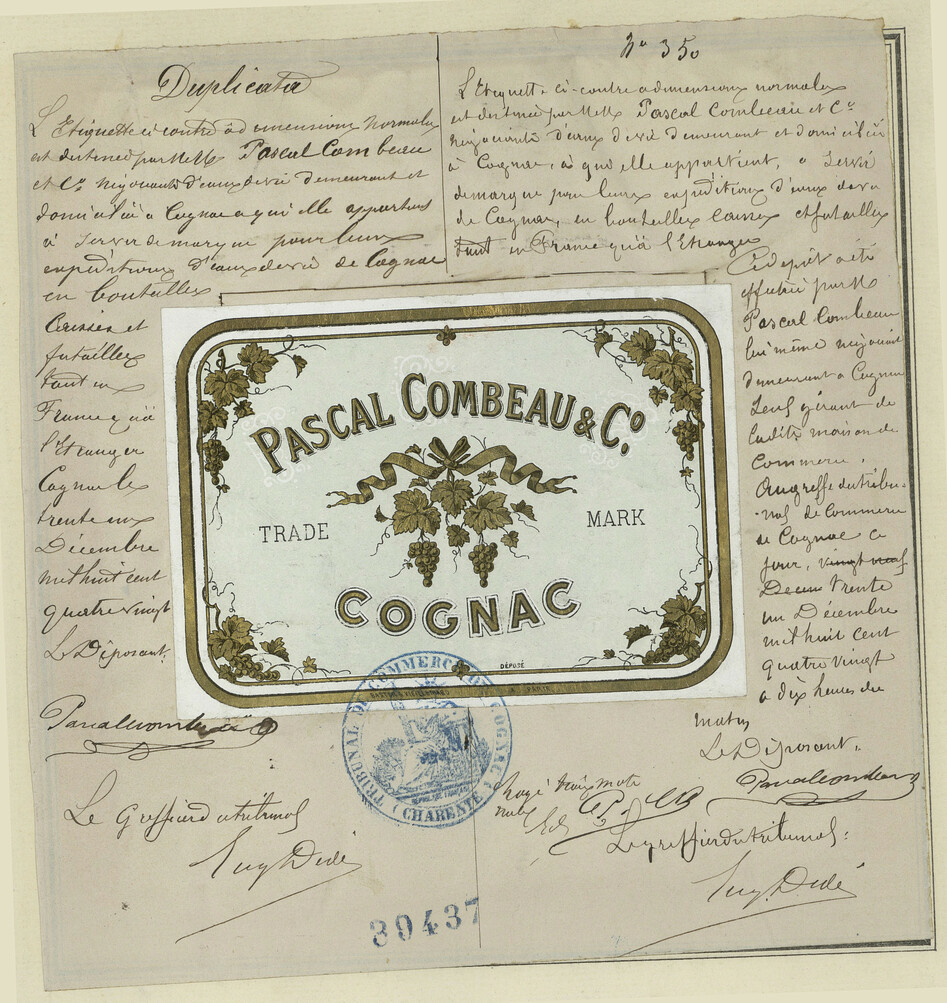 Nº 350
Duplicata
L'Etiquette ci contre à dimensions normales
est destinée par MM Pascal Combeau
et Cº négociants d'eaux de vie demeurant et
domicilié à Cognac a qui elle appartient
à servir de marque pour leurs
expéditions d'eaux de vie de Cognac
en bouteilles
Caisses et
futailles
tant en
France qu'à
l'Etranger
Cognac le
trente un
Décembre
mil huit cent
quatre vingt
Le Déposant.
Pascal Combeau
Le Greffier du tribunal
Eug Dedé
L'Etiquette ci-contre a dimensions normales
est destinée par MM Pascal Combeau et Cº
négociants d'eaux de vie demeurant et domicilié
à Cognac, à qui elle appartient, a servir
de marque pour leurs expéditions d'eaux de vie
de Cognac, en bouteilles caisses et futailles
tant en France qu'à l'Etranger
Ce dépôt a été
effectué par M
Pascal Combeau
lui même négociant
demeurant a Cognac
seul gérant de
ladite maison de
Commerce.
Au greffe du tribu-
-nal de Commerce
de Cognac ce
jour, vingt neuf
Decem trente
un Décembre
mil huit cent
quatre vingt
a dix heures du
matin
Le Déposant.
Pascal Combeau
Rayé trois mots
nuls
Le greffier du tribunal:
Eug. Dedé
PASCAL COMBEAU & Cº
TRADE MARK
COGNAC
DÉPOSÉ
TRIBUNAL DE COMMERCE DE COGNAC
RÉPUBLIQUE FRANÇAISE
(CHARENTE)
39437